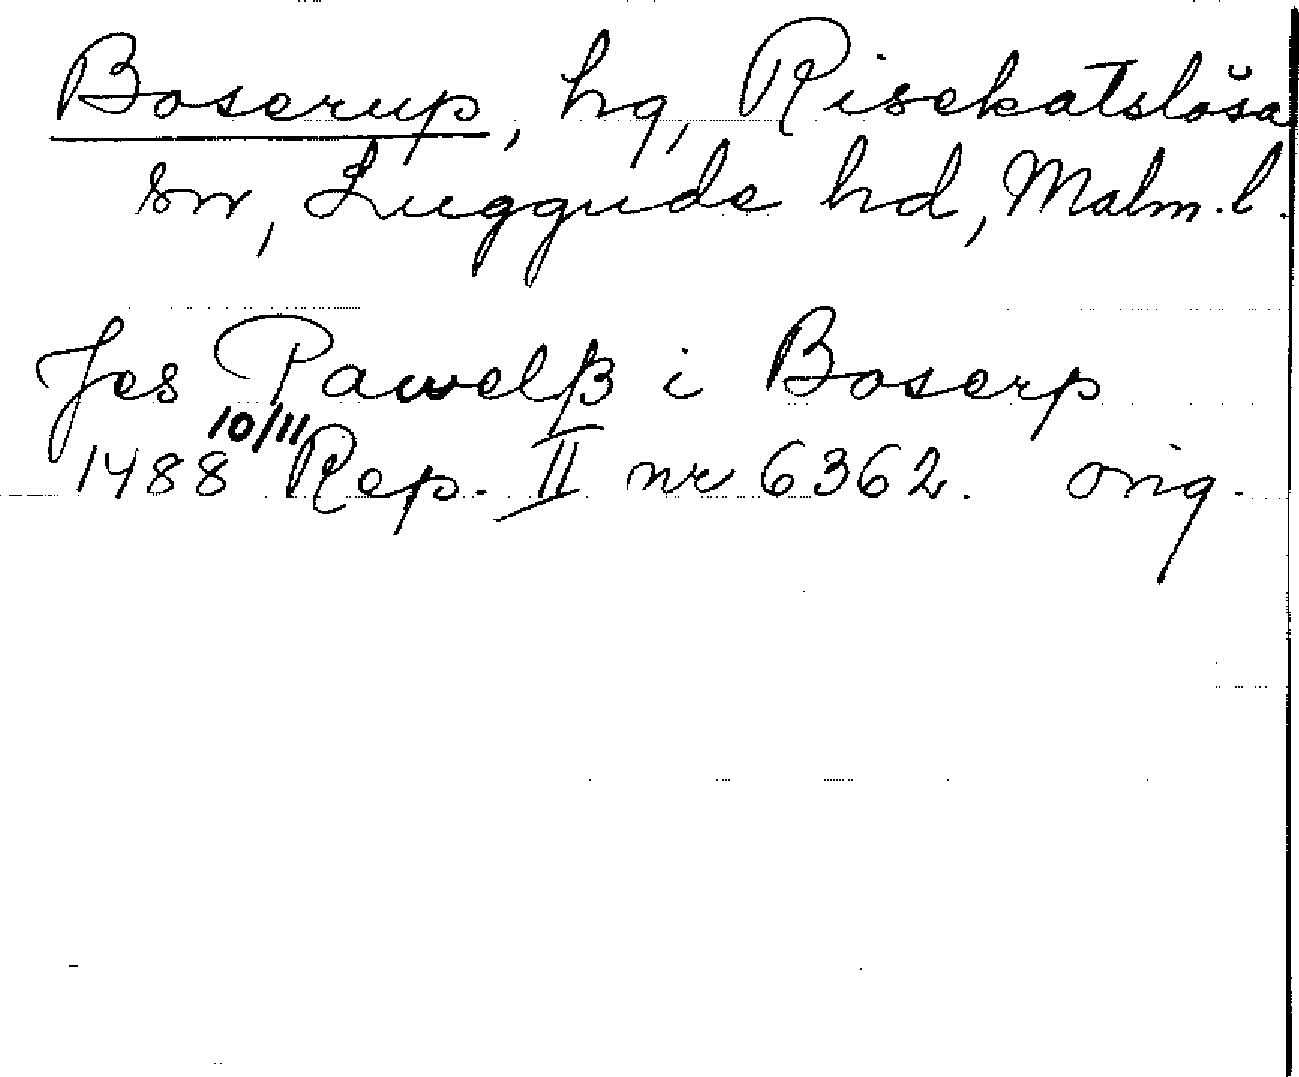 Boserup, hg, Risekatslösa
sn, Luggude hd, Malm.l.
Jes Pawelß i Boserp
1488 10/11 Rep. II nr 6362. orig.